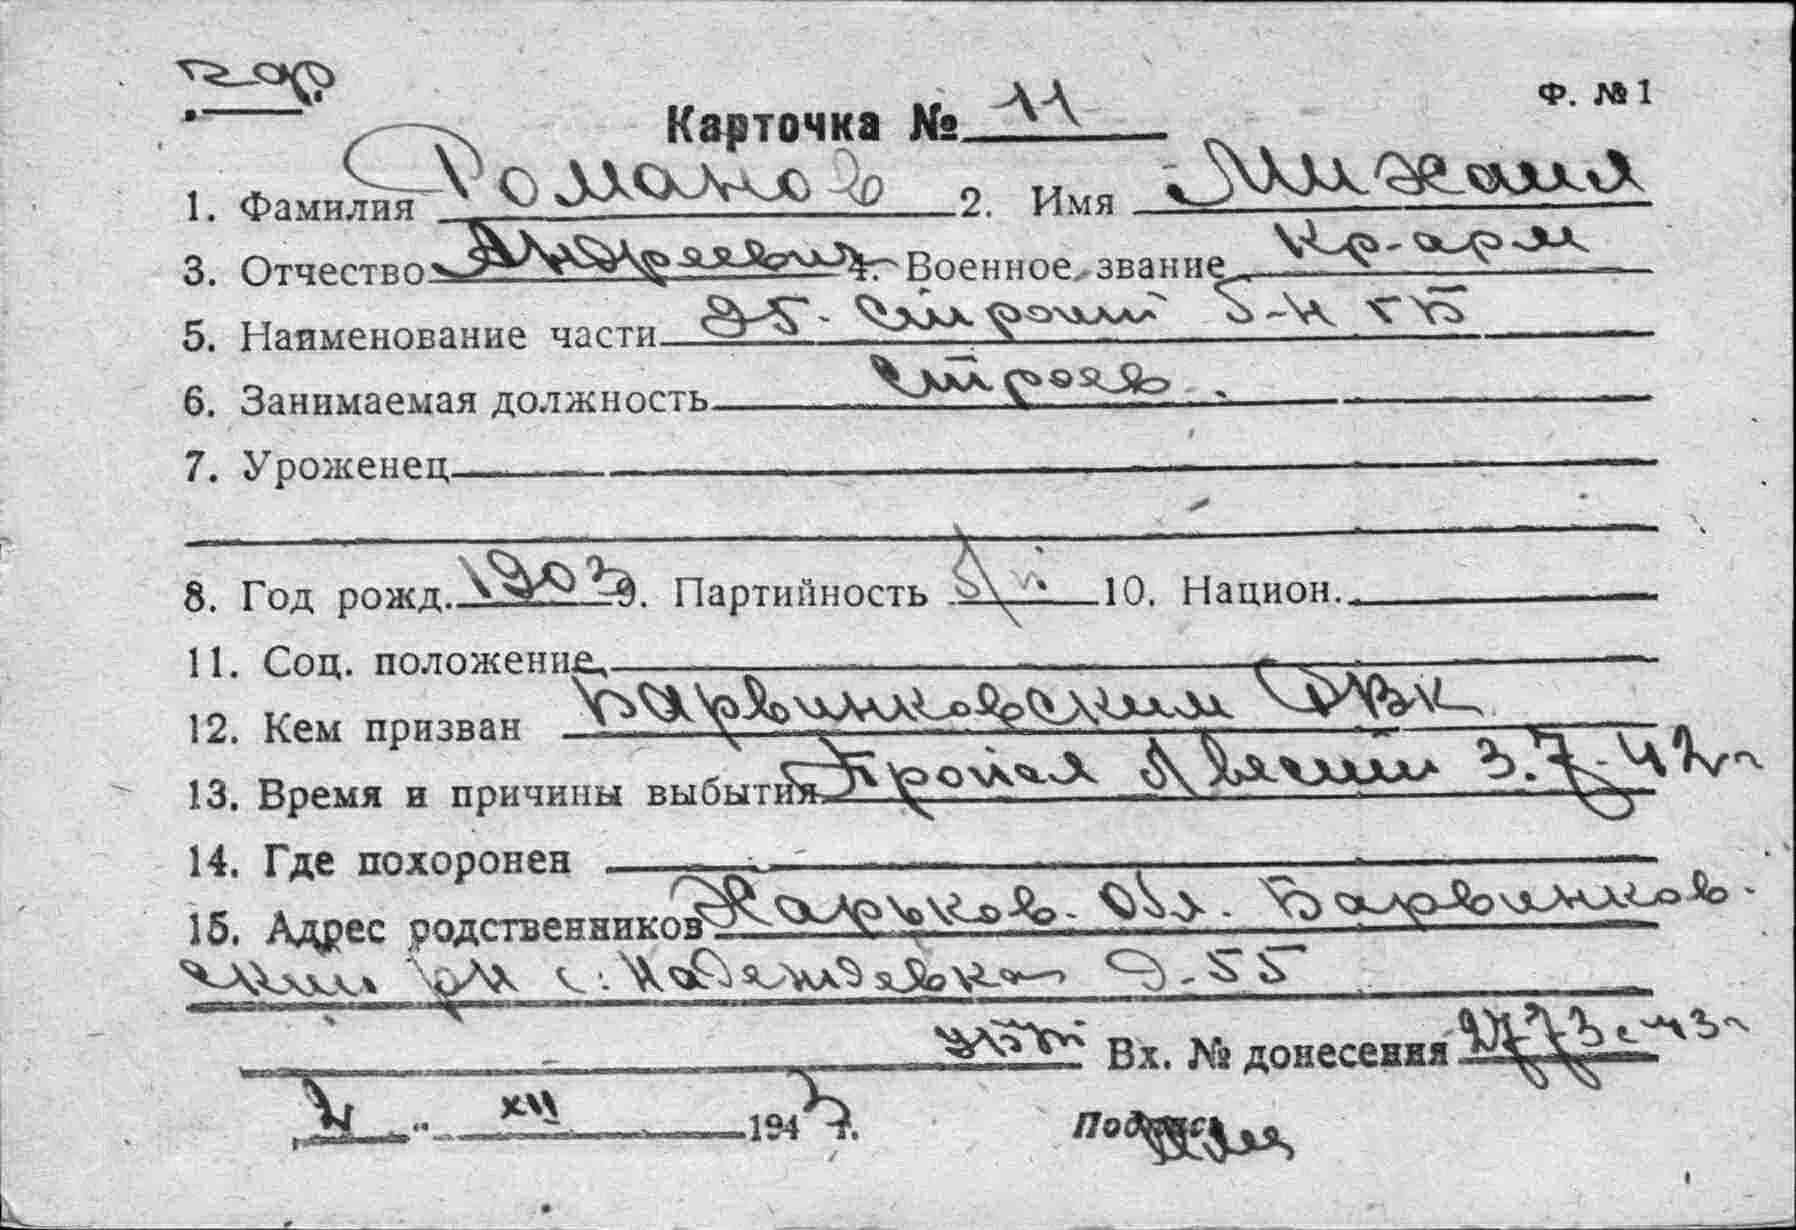 Ф. №1
Карточка № 11
1. Фамилия Романов 2. Имя Михаил
3. Отчество Андреевич 4. Военное звание Кр-арм
5. Наименование части 95. строит б-н
6. Занимаемая должность строев.
7. Уроженец
8. Год рожд. 1903 9. Партийность б/п 10. Национ.
11. Соц. положение
12. Кем призван Барвинковским РВК
13. Время и причины выбытия Пропал без вести 3.7.42 г
14. Где похоронен
15. Адрес родственников Харьков. обл. Барвинков-
ский рн с. Надеждевка д-55
Вх. № донесения 2773с 43г
2 " XII 1943 г.
Подпись